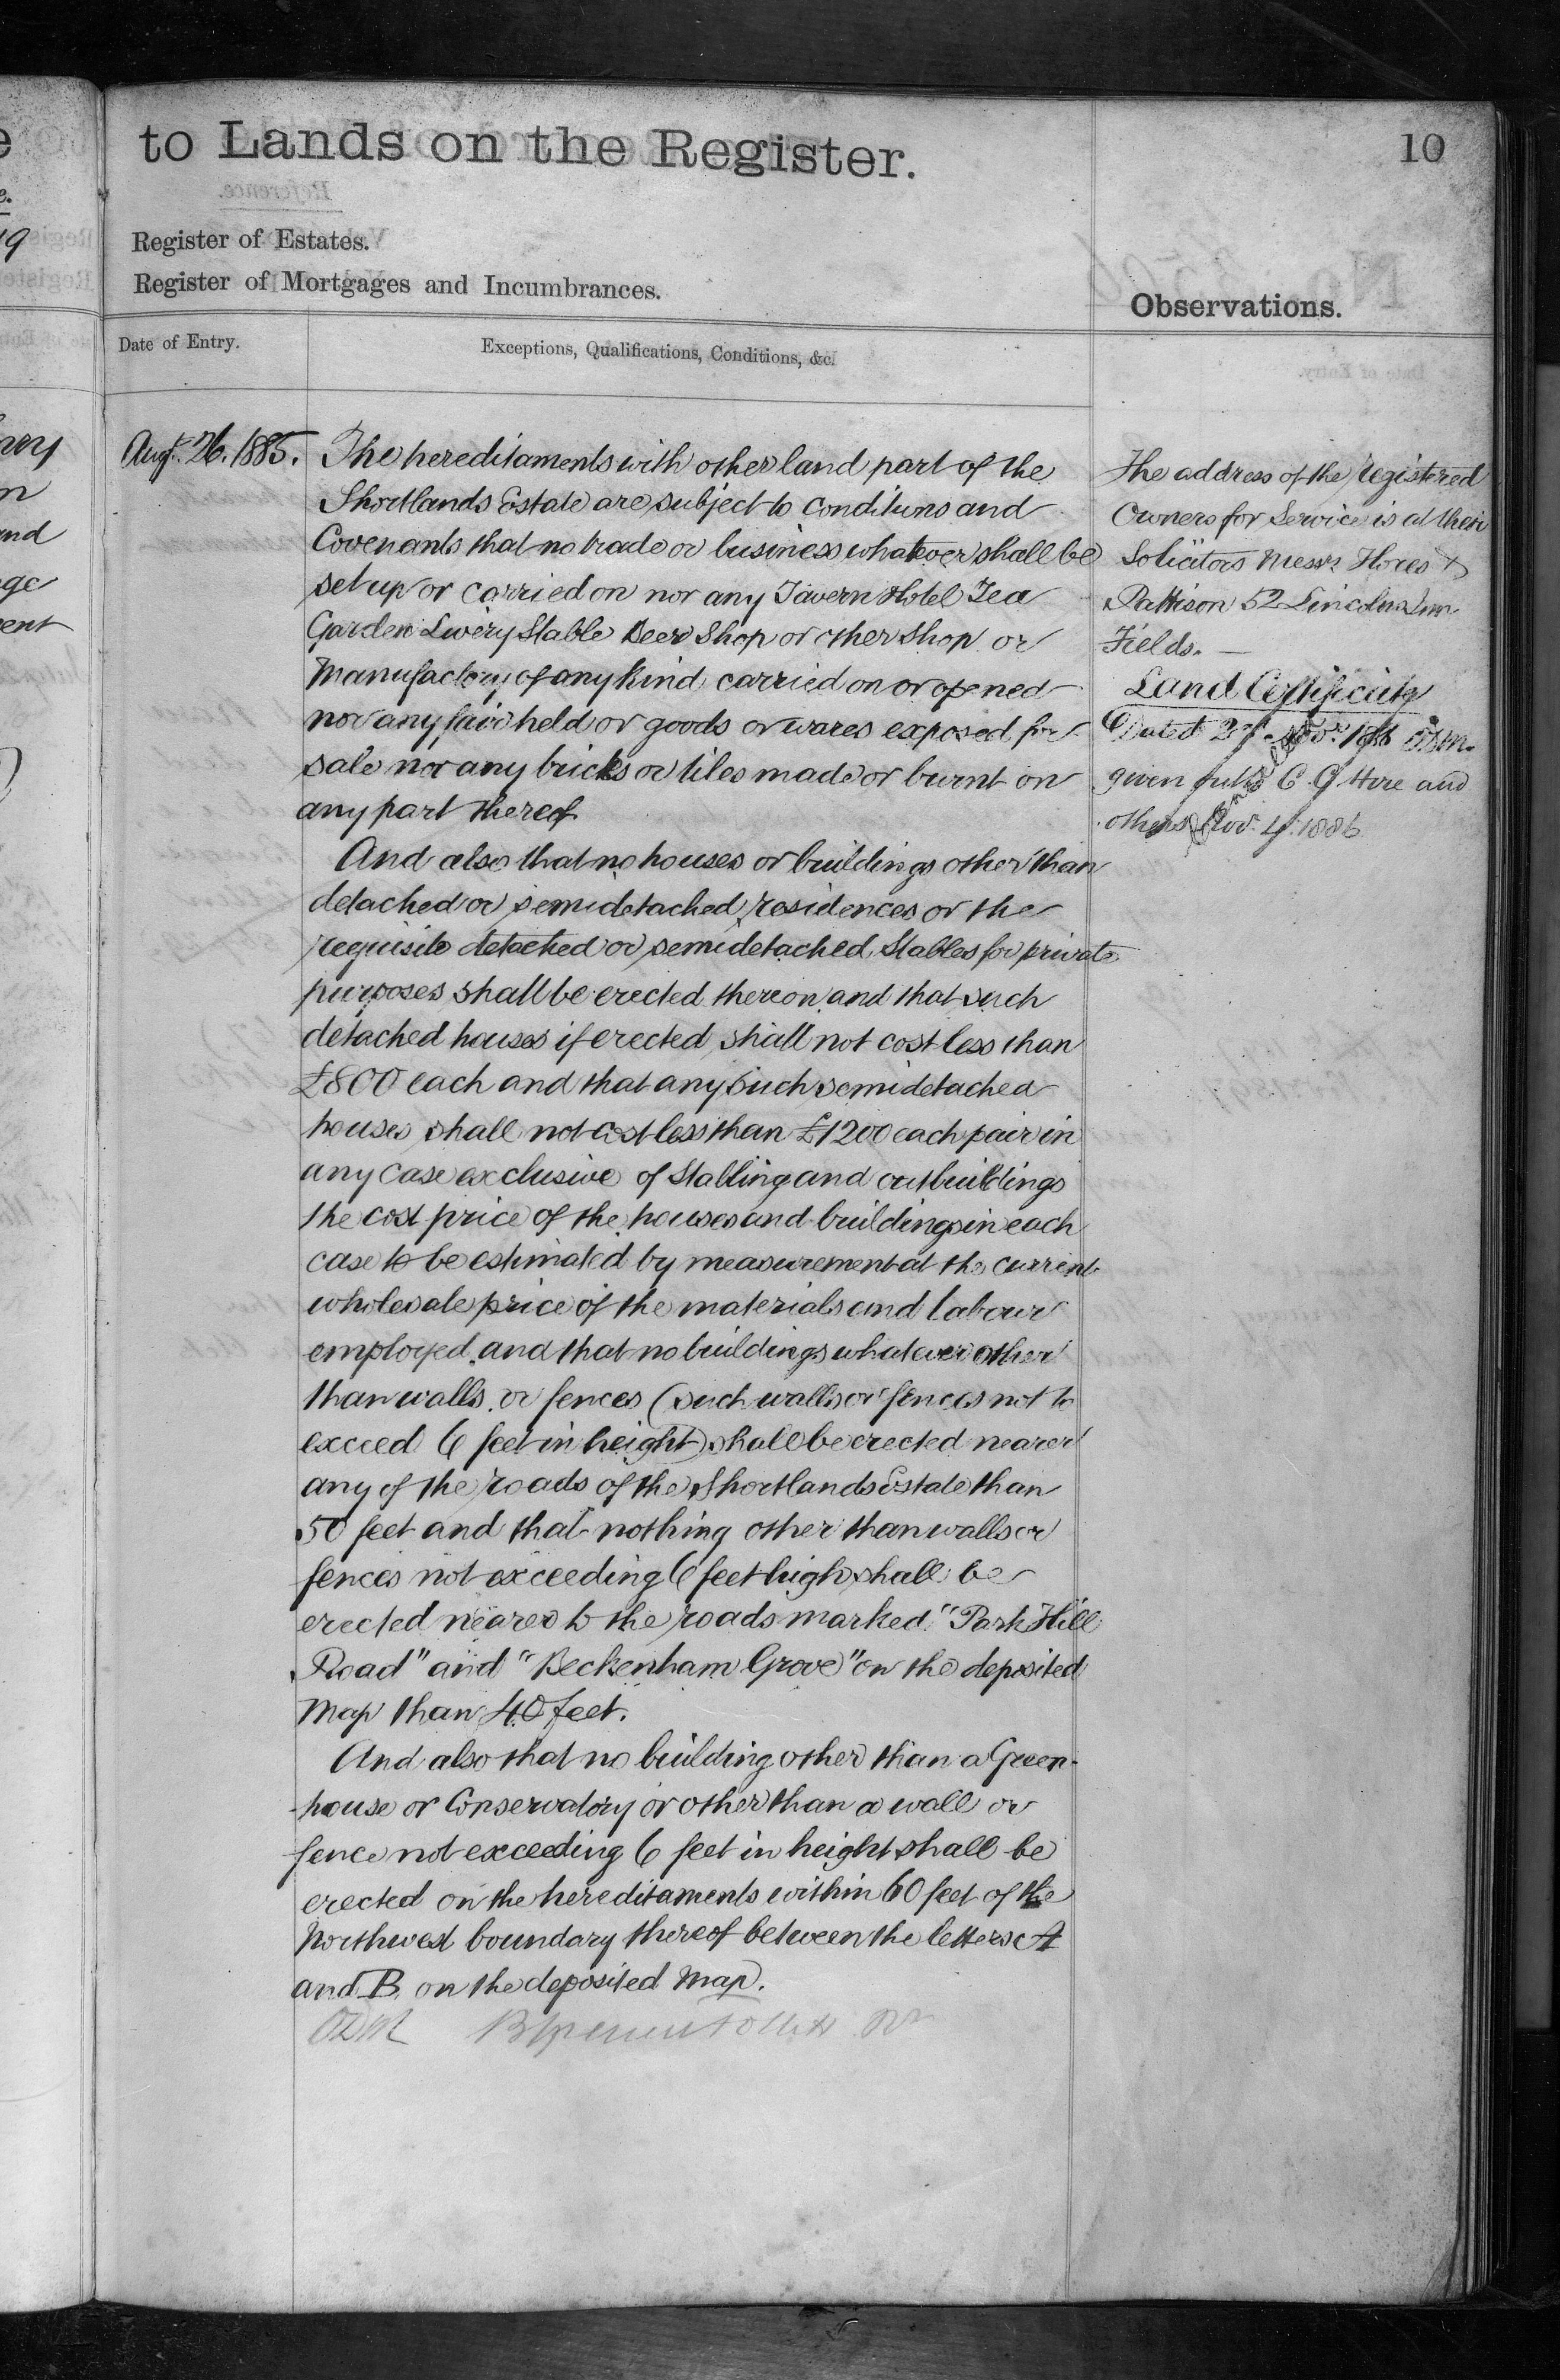 to Lands on the Register.
10
Register of Estates.
Register of Mortgages and Incumbrances.
Observations.
Date of Entry.
Exceptions, Qualifications, Conditions, &c.
Augt. 26. 1885.
The hereditaments with other land part of the
Shortlands Estate are subject to conditions and
Covenants that no trade or business whatever shall be
set up or carried on nor any Tavern Hotel Tea
Garden Livery Stable Beer Shop or other Shop or
Manufactory of any kind carried on or opened
nor any fair held or goods or wares exposed for
sale nor any bricks or tiles made or burnt on
any part thereof
And also that no houses or buildings other than
detached or semidetached residences or the
requisite detached or semidetached Stables for private
purposes shall be erected thereon and that such
detached houses if erected shall not cost less than
£800 each and that any such semidetached
houses shall not cost less than £1200 each pair in
any case exclusive of Stabling and outbuildings
the cost price of the houses and buildings in each
case to be estimated by measurement at the current
wholesale price of the materials and labour
employed and that no buildings whatever other
than walls or fences (such walls or fences not to
exceed 6 feet in height) shall be erected nearer
any of the roads of the Shortlands Estate than
50 feet and that nothing other than walls or
fences not exceeding 6 feet high shall be
erected nearer to the roads marked "Park Hill
Road" and "Beckenham Grove" on the deposited
Map than 40 feet.
And also that no building other than a Green-
house or Conservatory or other than a wall or
fence not exceeding 6 feet in height shall be
erected on the hereditaments within 60 feet of the
Northwest boundary thereof between the letters A
and B on the deposited Map.
The address of the registered
Owners for Service is at their
Solicitors Messrs Hores &
Pattison 52 Lincolns Inn
Fields.
Land Certificate
Dated
given C. G. Hore and
others Nov. 4. 1886